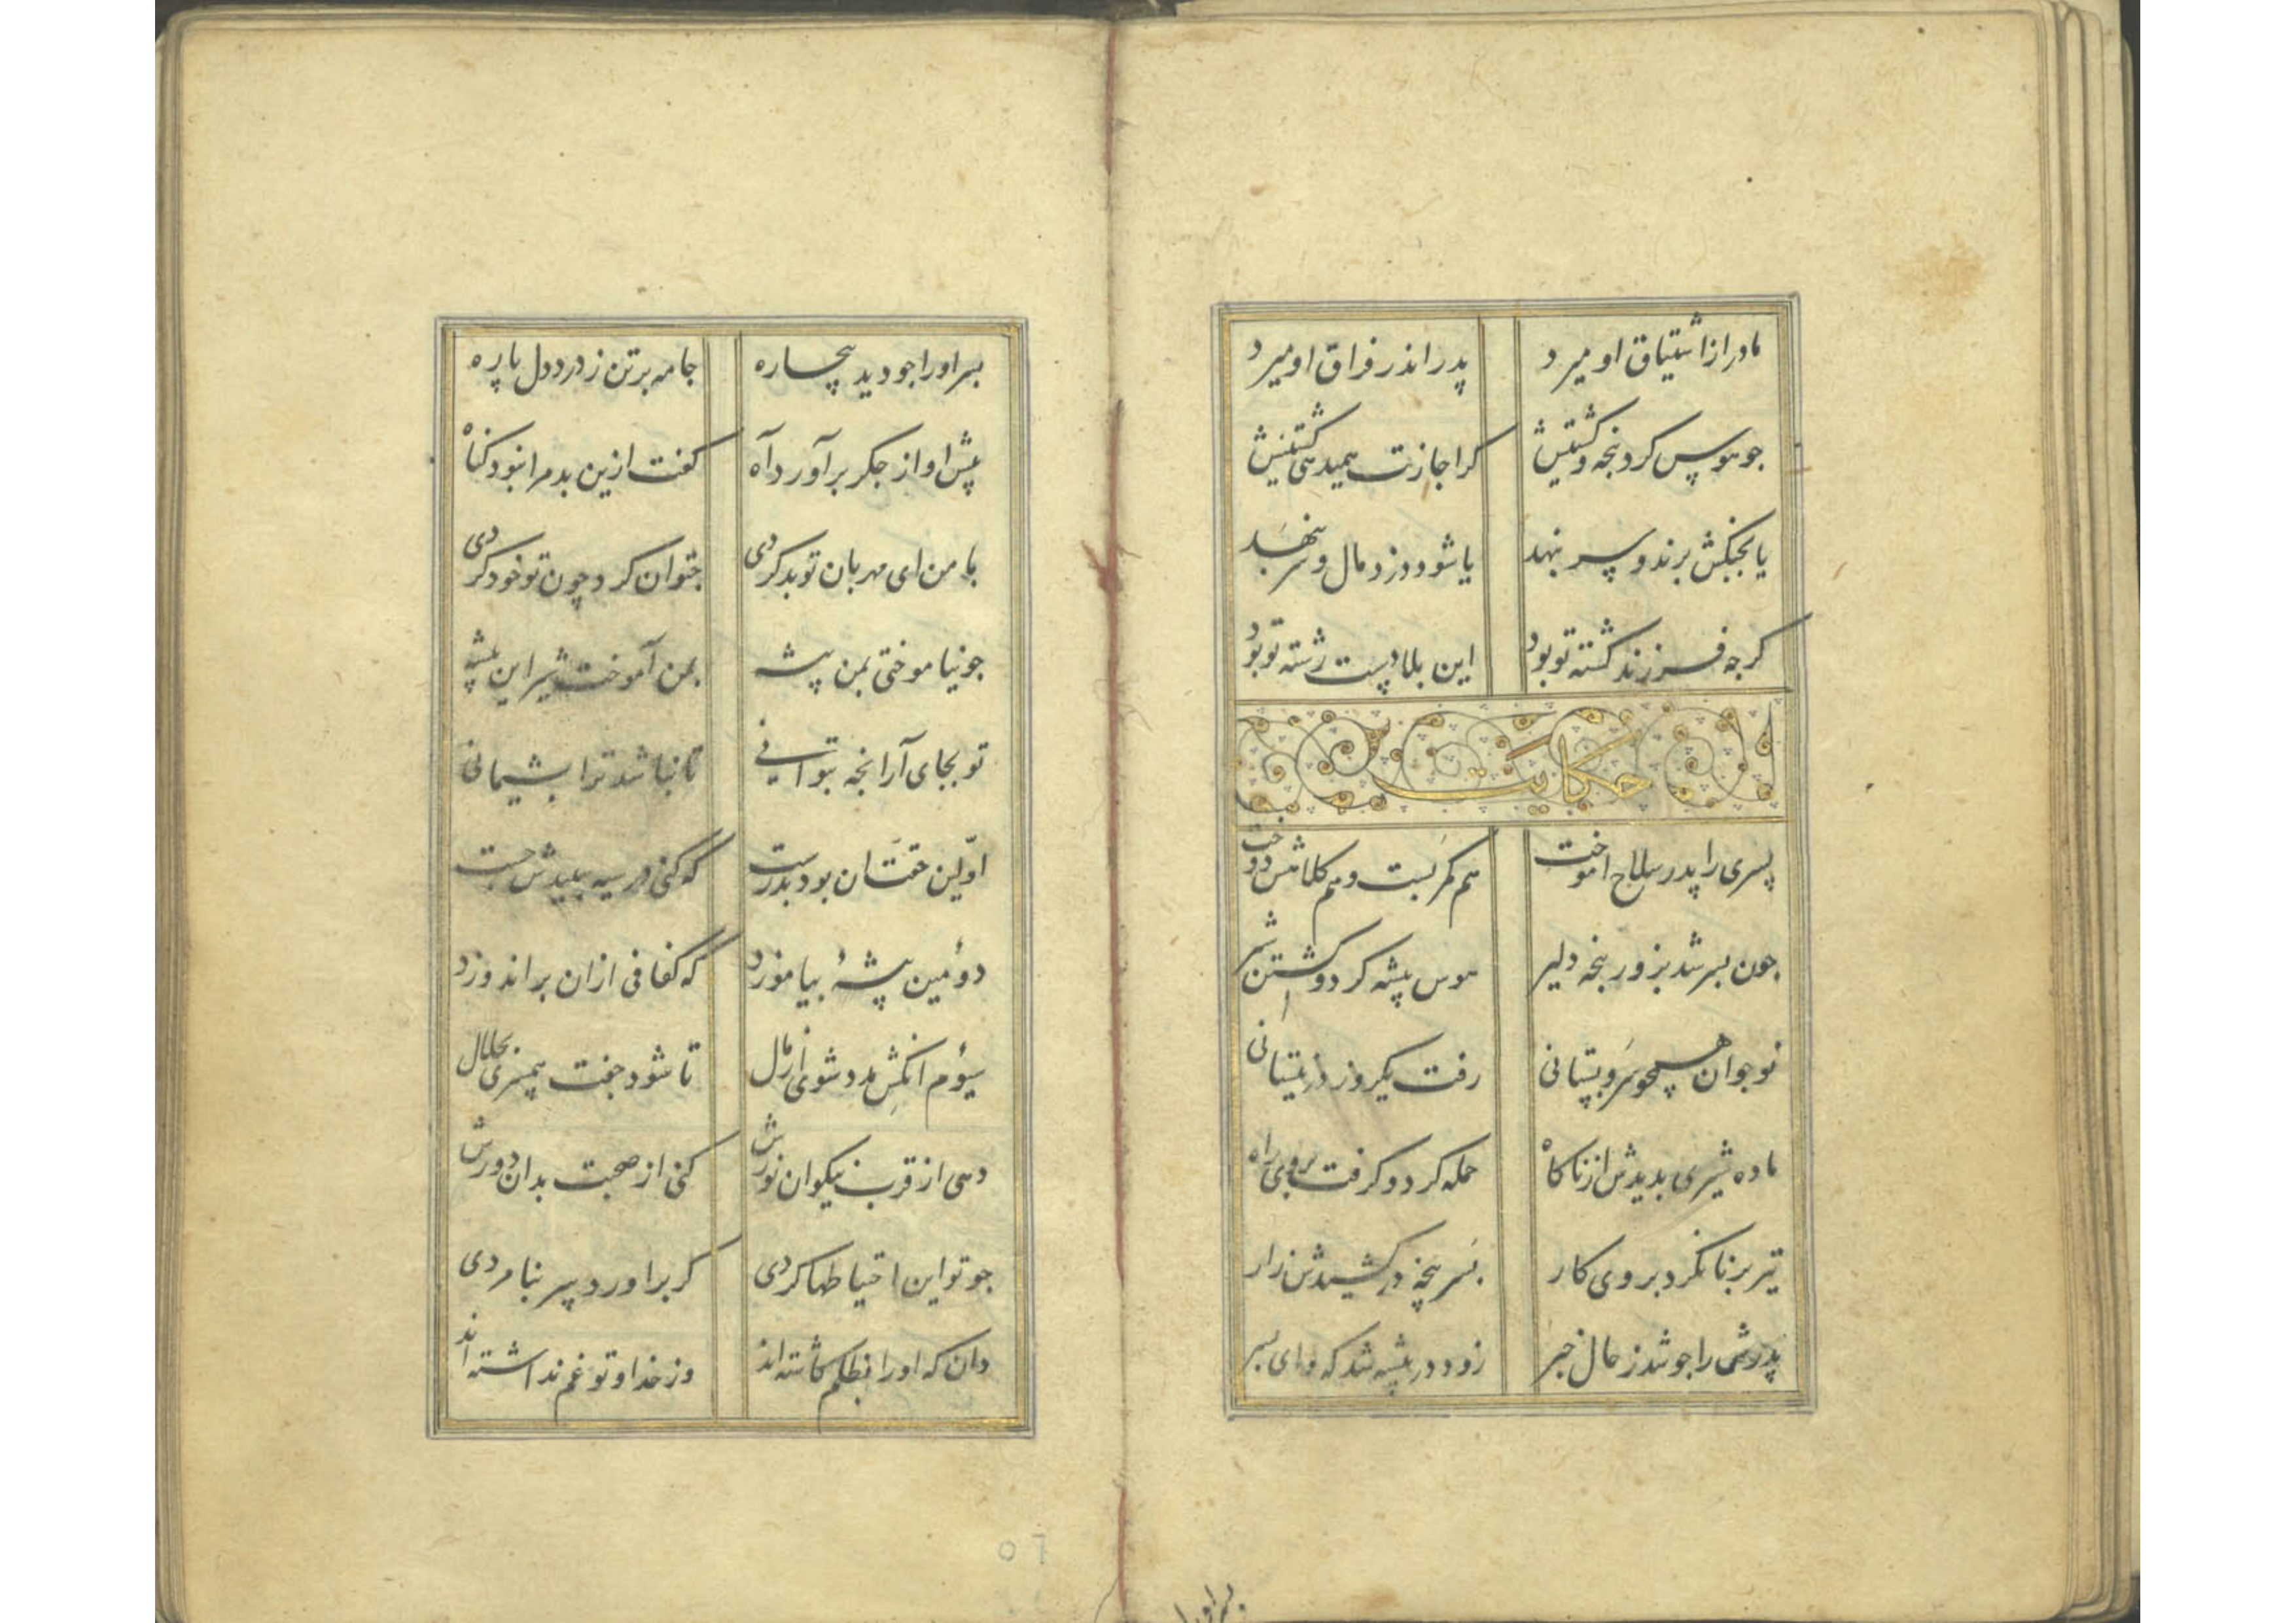 مادر از اشتیاق او میرد پدر اندر فراق او میرد
جو هوس کرد پنجه و کشتیش کر اجازت همیدهی کشتیش
یا بجنکش برند و سر بنهد یا شود دزد مال و سر بنهد
کرجه فرزند کشته تو بود این بلا دست رشته تو بود
حکایت
پسری را پدر سلاح اموخت هم کمر بست و هم کلاهش دوخت
جون بسر شد بزور پنجه دلیر هوس پیشه کرد و کشتن شیر
نوجوان همجو سرو بستانی رفت یکروز در نیستانی
ماده شیری بدیدش از ناکاه حمله کرد و کرفت بروی راه
تیر برنا نکرد بر وی کار بسر پنجه در کشیدش زار
پدرش را جو شد ز حال خبر زود در پیشه شد که وای پسر
بسر او را
بسر او را جو دید بیچاره جامه بر تن ز درد دل پاره
پیش او از جکر برآورد آه کفت ازین بد مرا نبود کناه
با من ای مهربان تو بد کردی جتوان کرد چون تو خود کردی
جو نیاموختی بمن پیشه بمن آموخت شیر این پیشه
تو بجای آر انجه بتوانی تا نباشد ترا بشیمانی
اولین حقشان بود بدرست که کنی در سیه بلیدش جست
دوئمین پیشهٔ بیاموزد که کفافی ازان بر اندوزد
سیوم انکش مدد شوی از مال تا شود جفت همسری بحلال
دهی از قرب نیکوان نورش کنی از صحبت بدان دورش
جو تو این احتیاطها کردی کر براورد سر بنامردی
دان که او را بظلم کاشته اند وز خدا و تو غم نداشته اند